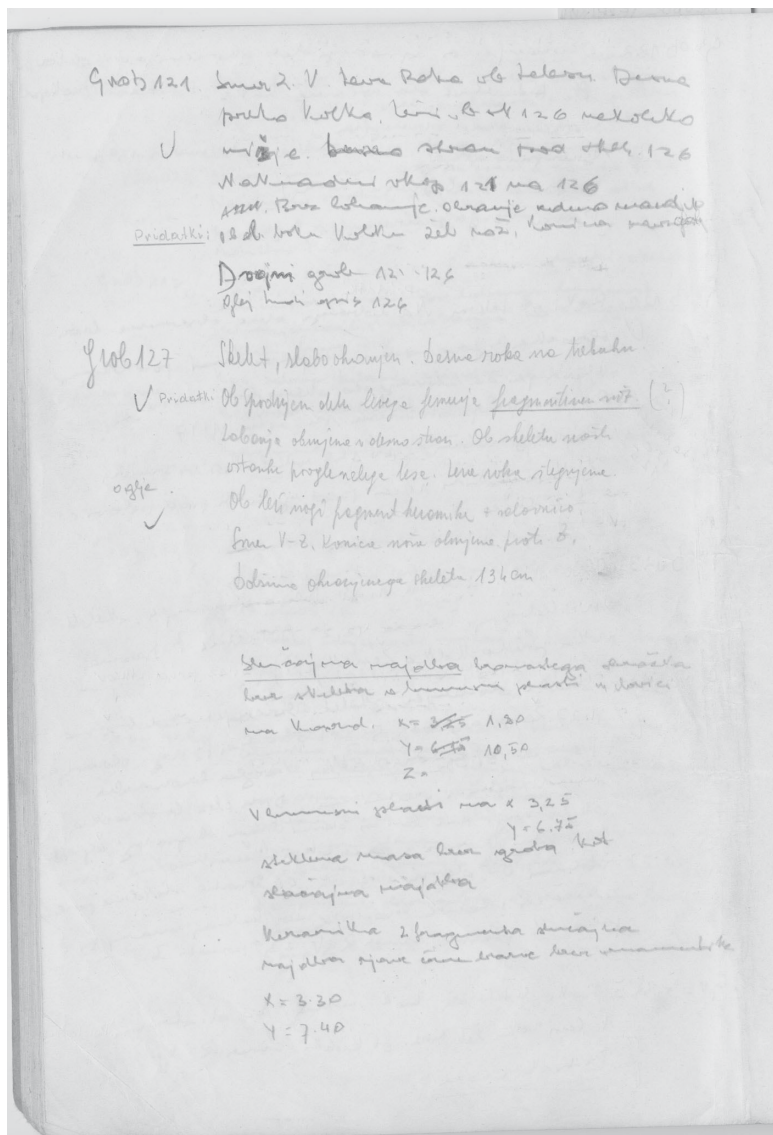 Grob 121 Smer Z. V. Leva Roka ob telesu. Desna
preko kolka, leži ob sk 126 nekoliko
nižje. stran pod skel. 126
Naknadni vkop 121 na 126
Pridatki: Ob d. boku kolku žel. nož, konica navzgor
Dvojni grob 121 - 126
Glej tudi opis 126
Grob 127 Skelet, slabo ohranjen. Desna roka na trebuhu.
Pridatki Ob spodnjem delu levega femurja fragmentiran nož. (?)
Lobanja obrnjena v desno stran. Ob skeletu našli
oglje
ostanke zoglenelega lesa. Leva roka stegnjena.
Ob levi nogi fragment keramike
Smer V-Z. Konica noža obrnjena proti Z.
Dolžina ohranjenega skeleta 134 cm
Slučajna najdba bronastega obročka
brez skeleta v humusni plasti
na koord. X= 3,25 1,80
Y= 6,75 10,50
Z=
V humusni plasti na X 3,25
Y= 6.75
steklena masa brez groba kot
slučajna najdba
Keramika 2 fragmenta slučajna
najdba črne barve brez ornamentike
X= 3.30
Y= 7.40